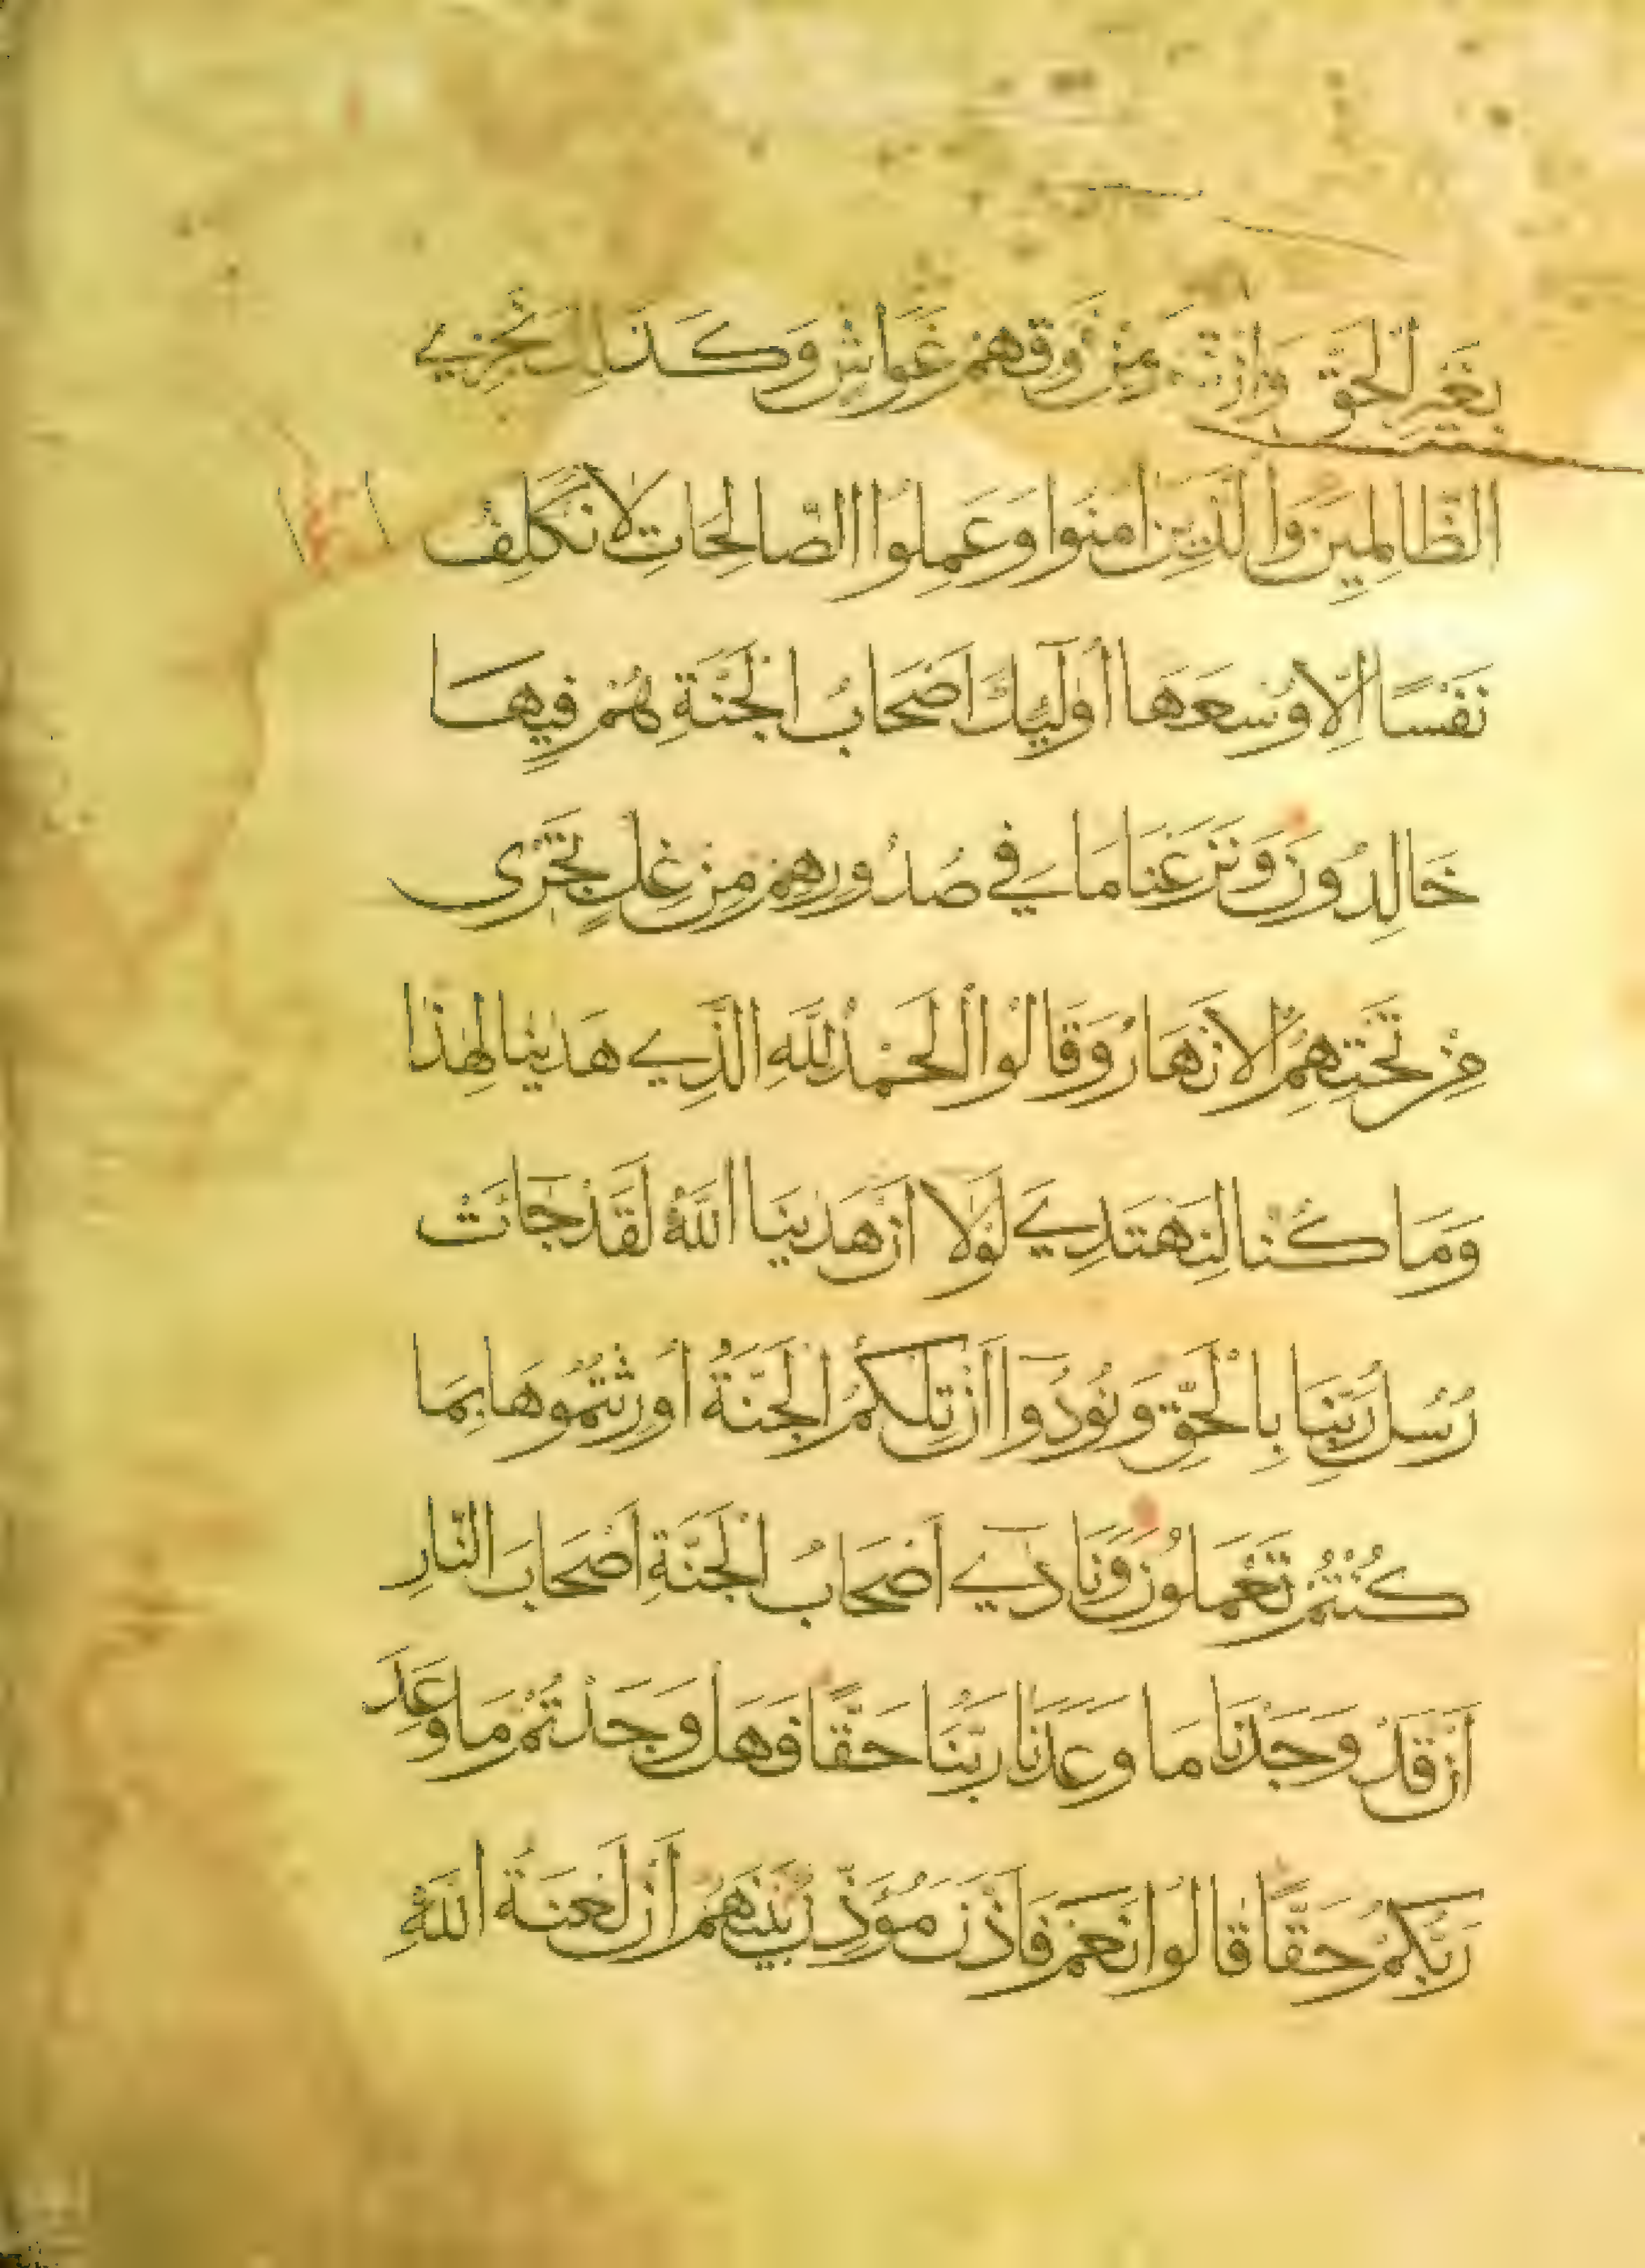 بِغَيْرِ الْحَقِّ وَمِنْ فَوْقِهِمْ غَوَاشٍ وَكَذَلِكَ نَجْزِي
الظَّالِمِينَ وَالَّذِينَ اٰمَنُوا وَعَمِلُوا الصَّالِحَاتِ لَا نُكَلِّفُ
نَفْسًا اِلَّا وُسْعَهَا اُولٰٓئِكَ اَصْحَابُ الْجَنَّةِ هُمْ فِيهَا
خَالِدُونَ وَنَزَعْنَا مَا فِي صُدُورِهِمْ مِنْ غِلٍّ تَجْرِى
مِنْ تَحْتِهِمُ الْاَنْهَارُ وَقَالُوا الْحَمْدُ لِلَّهِ الَّذِي هَدٰينَا لِهٰذَا
وَمَا كُنَّا لِنَهْتَدِيَ لَوْلَا اَنْ هَدٰينَا اللّٰهُ لَقَدْ جَائَتْ
رُسُلُ رَبِّنَا بِالْحَقِّ وَنُودُوا اَنْ تِلْكُمُ الْجَنَّةُ اُورِثْتُمُوهَا بِمَا
كُنْتُمْ تَعْمَلُونَ وَنَادٰٓي اَصْحَابُ الْجَنَّةِ اَصْحَابَ النَّارِ
اَنْ قَدْ وَجَدْنَا مَا وَعَدَنَا رَبُّنَا حَقًّا فَهَلْ وَجَدْتُمْ مَا وَعَدَ
رَبُّكُمْ حَقًّا قَالُوا نَعَمْ فَاَذَّنَ مُؤَذِّنٌ بَيْنَهُمْ اَنْ لَعْنَةُ اللّٰهِ